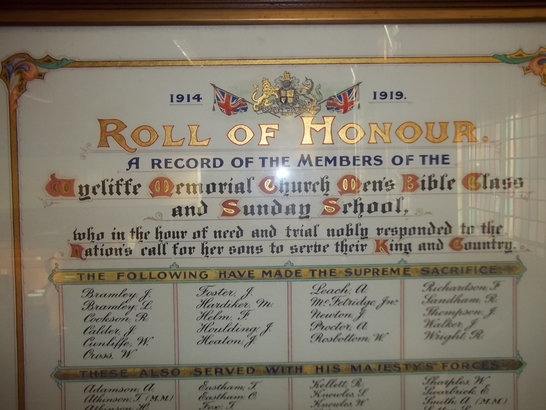 1914 1919.
ROLL OF HONOUR.
A RECORD OF THE MEMBERS OF THE
Wycliffe Memorial Church Men's Bible Class
and Sunday School,
who in the hour of need and trial nobly responded to the
Nation's call for her sons to serve their King and Country.
THE FOLLOWING HAVE MADE THE SUPREME SACRIFICE.
Bramley, J. Foster, J. Leach, A. Richardson, F.
Bramley, L. Hardiker, M. McFetridge, Jno. Sandham, R.
Cookson, R. Helm, F. Newton, J. Thompson, J.
Calder, J. Houlding, J. Procter, A. Walker, J.
Cunliffe, W. Heaton, J. Rosbottom, W. Wright, R.
Cross, W.
THESE ALSO SERVED WITH HIS MAJESTY'S FORCES
Adamson, A. Eastham, T. Kellett, R. Sharples, W.
Atkinson, T. (M.M.) Eastham, O. Knowles, S. Scarbrick, E.
Atkinson, Fox, T. Knowles, W. Smith, A. (M.M.)